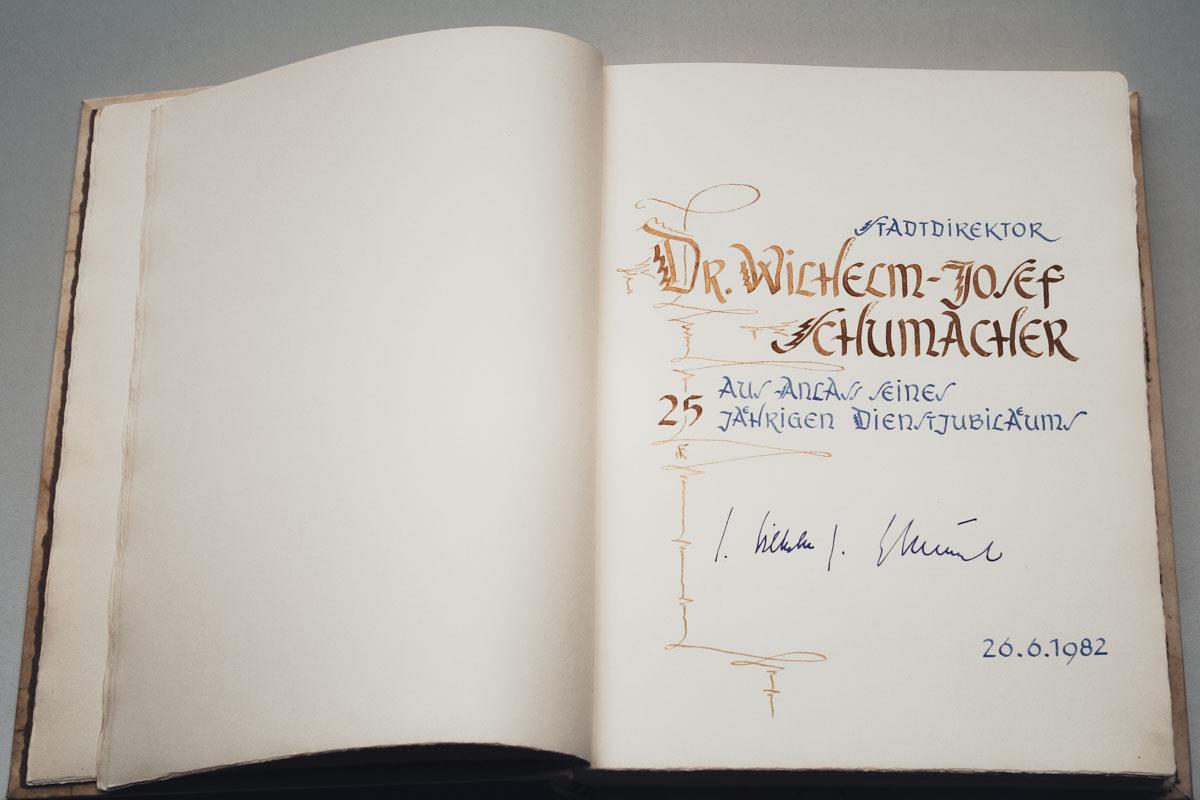 STADTDIREKTOR
DR. WILHELM-JOSEF
SCHUMACHER
25 AUS ANLASS SEINES
JÄHRIGEN DIENSTJUBILÄUMS
26.6.1982